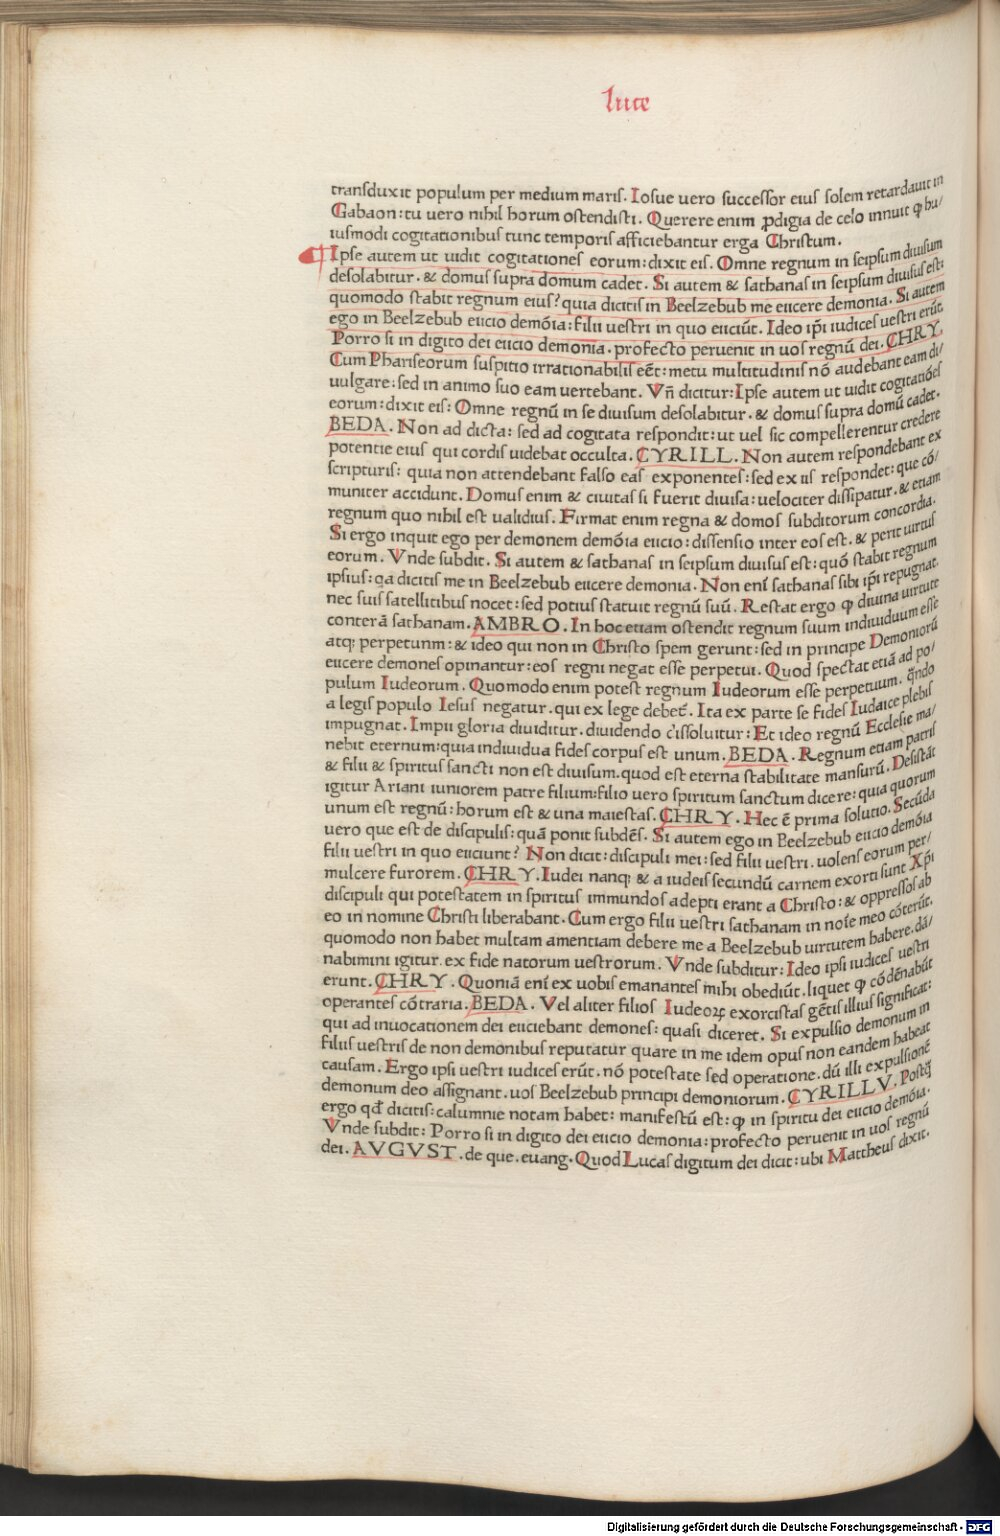 luce
transduxit populum per medium maris. Iosue uero successor eius solem retardauit in
Gabaon: tu uero nihil horum ostendisti. Querere enim ꝓdigia de celo innuit ꝙ hu/
iusmodi cogitationibus tunc temporis afficiebantur erga Christum.
Ipse autem ut uidit cogitationes eorum: dixit eis. Omne regnum in seipsum diuisum
desolabitur. & domus supra domum cadet. Si autem & sathanas in seipsum diuisus est:
quomodo stabit regnum eius? quia dicitis in Beelzebub me eiicere demonia. Si autem
ego in Beelzebub eiicio demõia: filii uestri in quo eiiciũt. Ideo ip̃i iudices uestri erũt.
Porro si in digito dei eiicio demonia. profecto peruenit in uos regnũ dei. CHRY.
Cum Phariseorum suspitio irrationabilis eẽt: metu multitudinis nõ audebant eam di/
uulgare: sed in animo suo eam uertebant. Vñ dicitur: Ipse autem ut uidit cogitatiões
eorum: dixit eis: Omne regnũ in se diuisum desolabitur. & domus supra domũ cadet.
BEDA. Non ad dicta: sed ad cogitata respondit: ut uel sic compellerentur credere
potentie eius qui cordis uidebat occulta. CYRILL. Non autem respondebant ex
scripturis: quia non attendebant falso eas exponentes: sed ex iis respondet: que cõ/
muniter accidunt. Domus enim & ciuitas si fuerit diuisa: uelociter dissipatur. & etiam
regnum quo nihil est ualidius. Firmat enim regna & domos subditorum concordia.
Si ergo inquit ego per demonem demõia eiicio: dissensio inter eos est. & perit uirtus
eorum. Vnde subdit. Si autem & sathanas in seipsum diuisus est: quõ stabit regnum
ipsius: qa dicitis me in Beelzebub eiicere demonia. Non eni sathanas sibi ip̃i repugnat.
nec suis satellitibus nocet: sed potius statuit regnũ suũ. Restat ergo ꝙ diuina uirtute
conterã sathanam. AMBRO. In hoc etiam ostendit regnum suum indiuiduum esse
atq; perpetunm: & ideo qui non in Christo spem gerunt: sed in principe Demoniorũ
eiicere demones opinantur: eos regni negat esse perpetui. Quod spectat etiã ad po/
pulum Iudeorum. Quomodo enim potest regnum Iudeorum esse perpetuum. qñdo
a legis populo Iesus negatur. qui ex lege debet. Ita ex parte se fides Iudaice plebis
impugnat. Impii gloria diuiditur. diuidendo dissoluitur: Et ideo regnũ Ecclesie ma/
nebit eternum: quia indiuidua fides corpus est unum. BEDA. Regnum etiam patris
& filii & spiritus sancti non est diuisum. quod est eterna stabilitate mansurũ. Desistãt
igitur Ariani iuniorem patre filium: filio uero spiritum sanctum dicere: quia quorum
unum est regnũ: horum est & una maiestas. CHRY. Hec ẽ prima solutio. Secũda
uero que est de discipulis: quã ponit subdẽs. Si autem ego in Beelzebub eiicio demõia
filii uestri in quo eiiciunt? Non dicit: discipuli mei: sed filii uestri. uolens eorum per/
mulcere furorem. CHRY. Iudei nanq; & a iudeis secundũ carnem exorti sunt Xp̃i
discipuli qui potestatem in spiritus immundos adepti erant a Christo: & oppressos ab
eo in nomine Christi liberabant. Cum ergo filii uestri sathanam in noĩe meo cõterũt.
quomodo non habet multam amentiam debere me a Beelzebub uirtutem habere. dã/
nabimini igitur. ex fide natorum uestrorum. Vnde subditur: Ideo ipsi iudices uestri
erunt. CHRY. Quoniã eni ex uobis emanantes mihi obediũt. liquet ꝙ cõdẽnabũt
operantes cõtraria. BEDA. Vel aliter filios Iudeoꝝ exorcistas gẽtis illius significat:
qui ad inuocationem dei eiiciebant demones: quasi diceret. Si expulsio demonum in
filiis uestris de non demonibus reputatur quare in me idem opus non eandem habeat
causam. Ergo ipsi uestri iudices erũt. nõ potestate sed operatione. dũ illi expulsionẽ
demonum deo assignant. uos Beelzebub principi demoniorum. CYRILLV. Postq̃
ergo qd̃ dicitis: calumnie notam habet: manifestũ est: ꝙ in spiritu dei eiicio demõia.
Vnde subdit: Porro si in digito dei eiicio demonia: profecto peruenit in uos regnũ
dei. AVGVST. de que. euang. Quod Lucas digitum dei dicit: ubi Mattheus dixit.
Digitalisierung gefördert durch die Deutsche Forschungsgemeinschaft - DFG